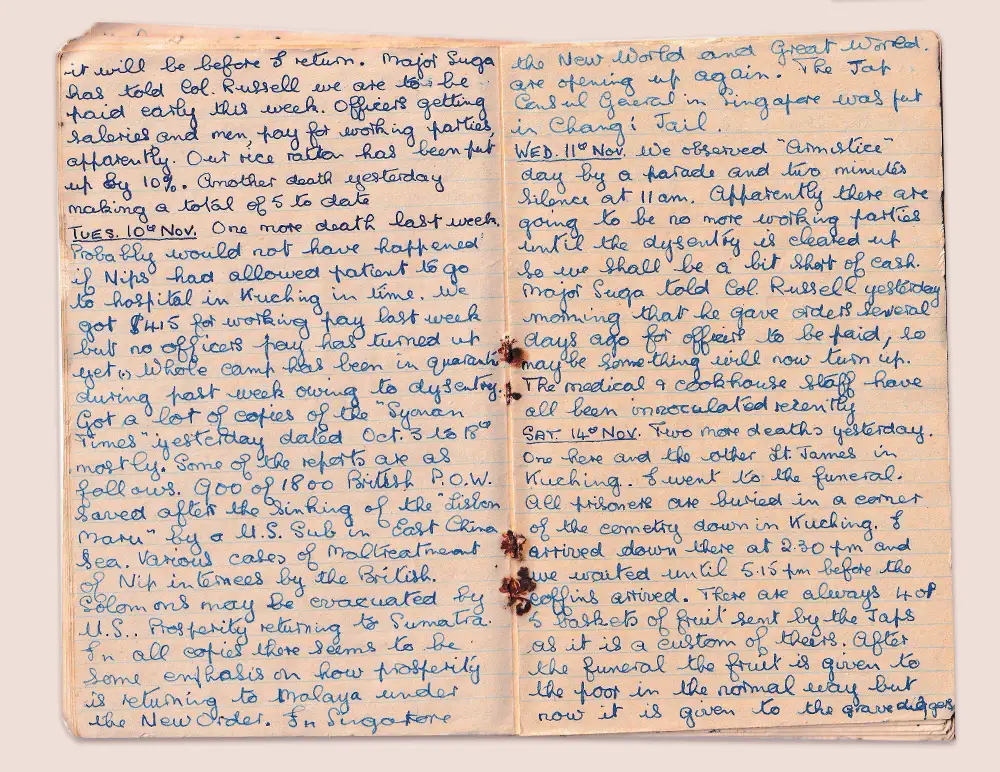 it will be before I return. Major Suga
has told Col. Russell we are to be
paid early this week. Officers getting
saleries and men, pay for working parties,
apparently. Our rice ration has been put
up by 10%. Another death yesterday
making a total of 5 to date
TUES. 10th NOV. One more death last week.
Probably would not have happened
if Nips had allowed patient to go
to hospital in Kuching in time. We
got $415 for working pay last week
but no officers pay has turned up
yet(.) Whole camp has been in quaranti
during past week owing to dysentry.
Got a lot of copies of the "Syonan
Times" yesterday dated Oct. 3 to 18th
mostly. Some of the reports are as
follows. 900 of 1800 British P.O.W.
saved after the sinking of the "Lisbon
Maru" by a U.S. Sub in East China
Sea. Various cases of Maltreatment
of Nip internees by the British.
Solomons may be evacuated by
U.S.. Prosperity returning to Sumatra.
In all copies there seems to be
some emphasis on how prosperity
is returning to Malaya under
the New Order. In Singapore
the New World and Great World.
are opening up again. The Jap
Consul General in Singapore was put
in Changi Jail.
WED. 11th NOV. We observed "Armistice"
day by a parade and two minutes
silence at 11am. Apparently there are
going to be no more working parties
until the dysentry is cleared up
so we shall be a bit short of cash.
Major Suga told Col. Russell yesterday
morning that he gave orders several
days ago for officers to be paid, so
maybe something will now turn up.
The medical & cookhouse staff have
all been innoculated recently
SAT. 14th NOV. Two more deaths yesterday.
One here and the other Lt James in
Kuching. I went to the funeral.
All prisoners are buried in a corner
of the cemetry down in Kuching. I
arrived down there at 2.30 pm and
we waited until 5.15 pm before the
coffins arrived. There are always 4 or
5 baskets of fruit sent by the Japs
as it is a custom of theirs. After
the funeral the fruit is given to
the poor in the normal way but
now it is given to the grave diggers